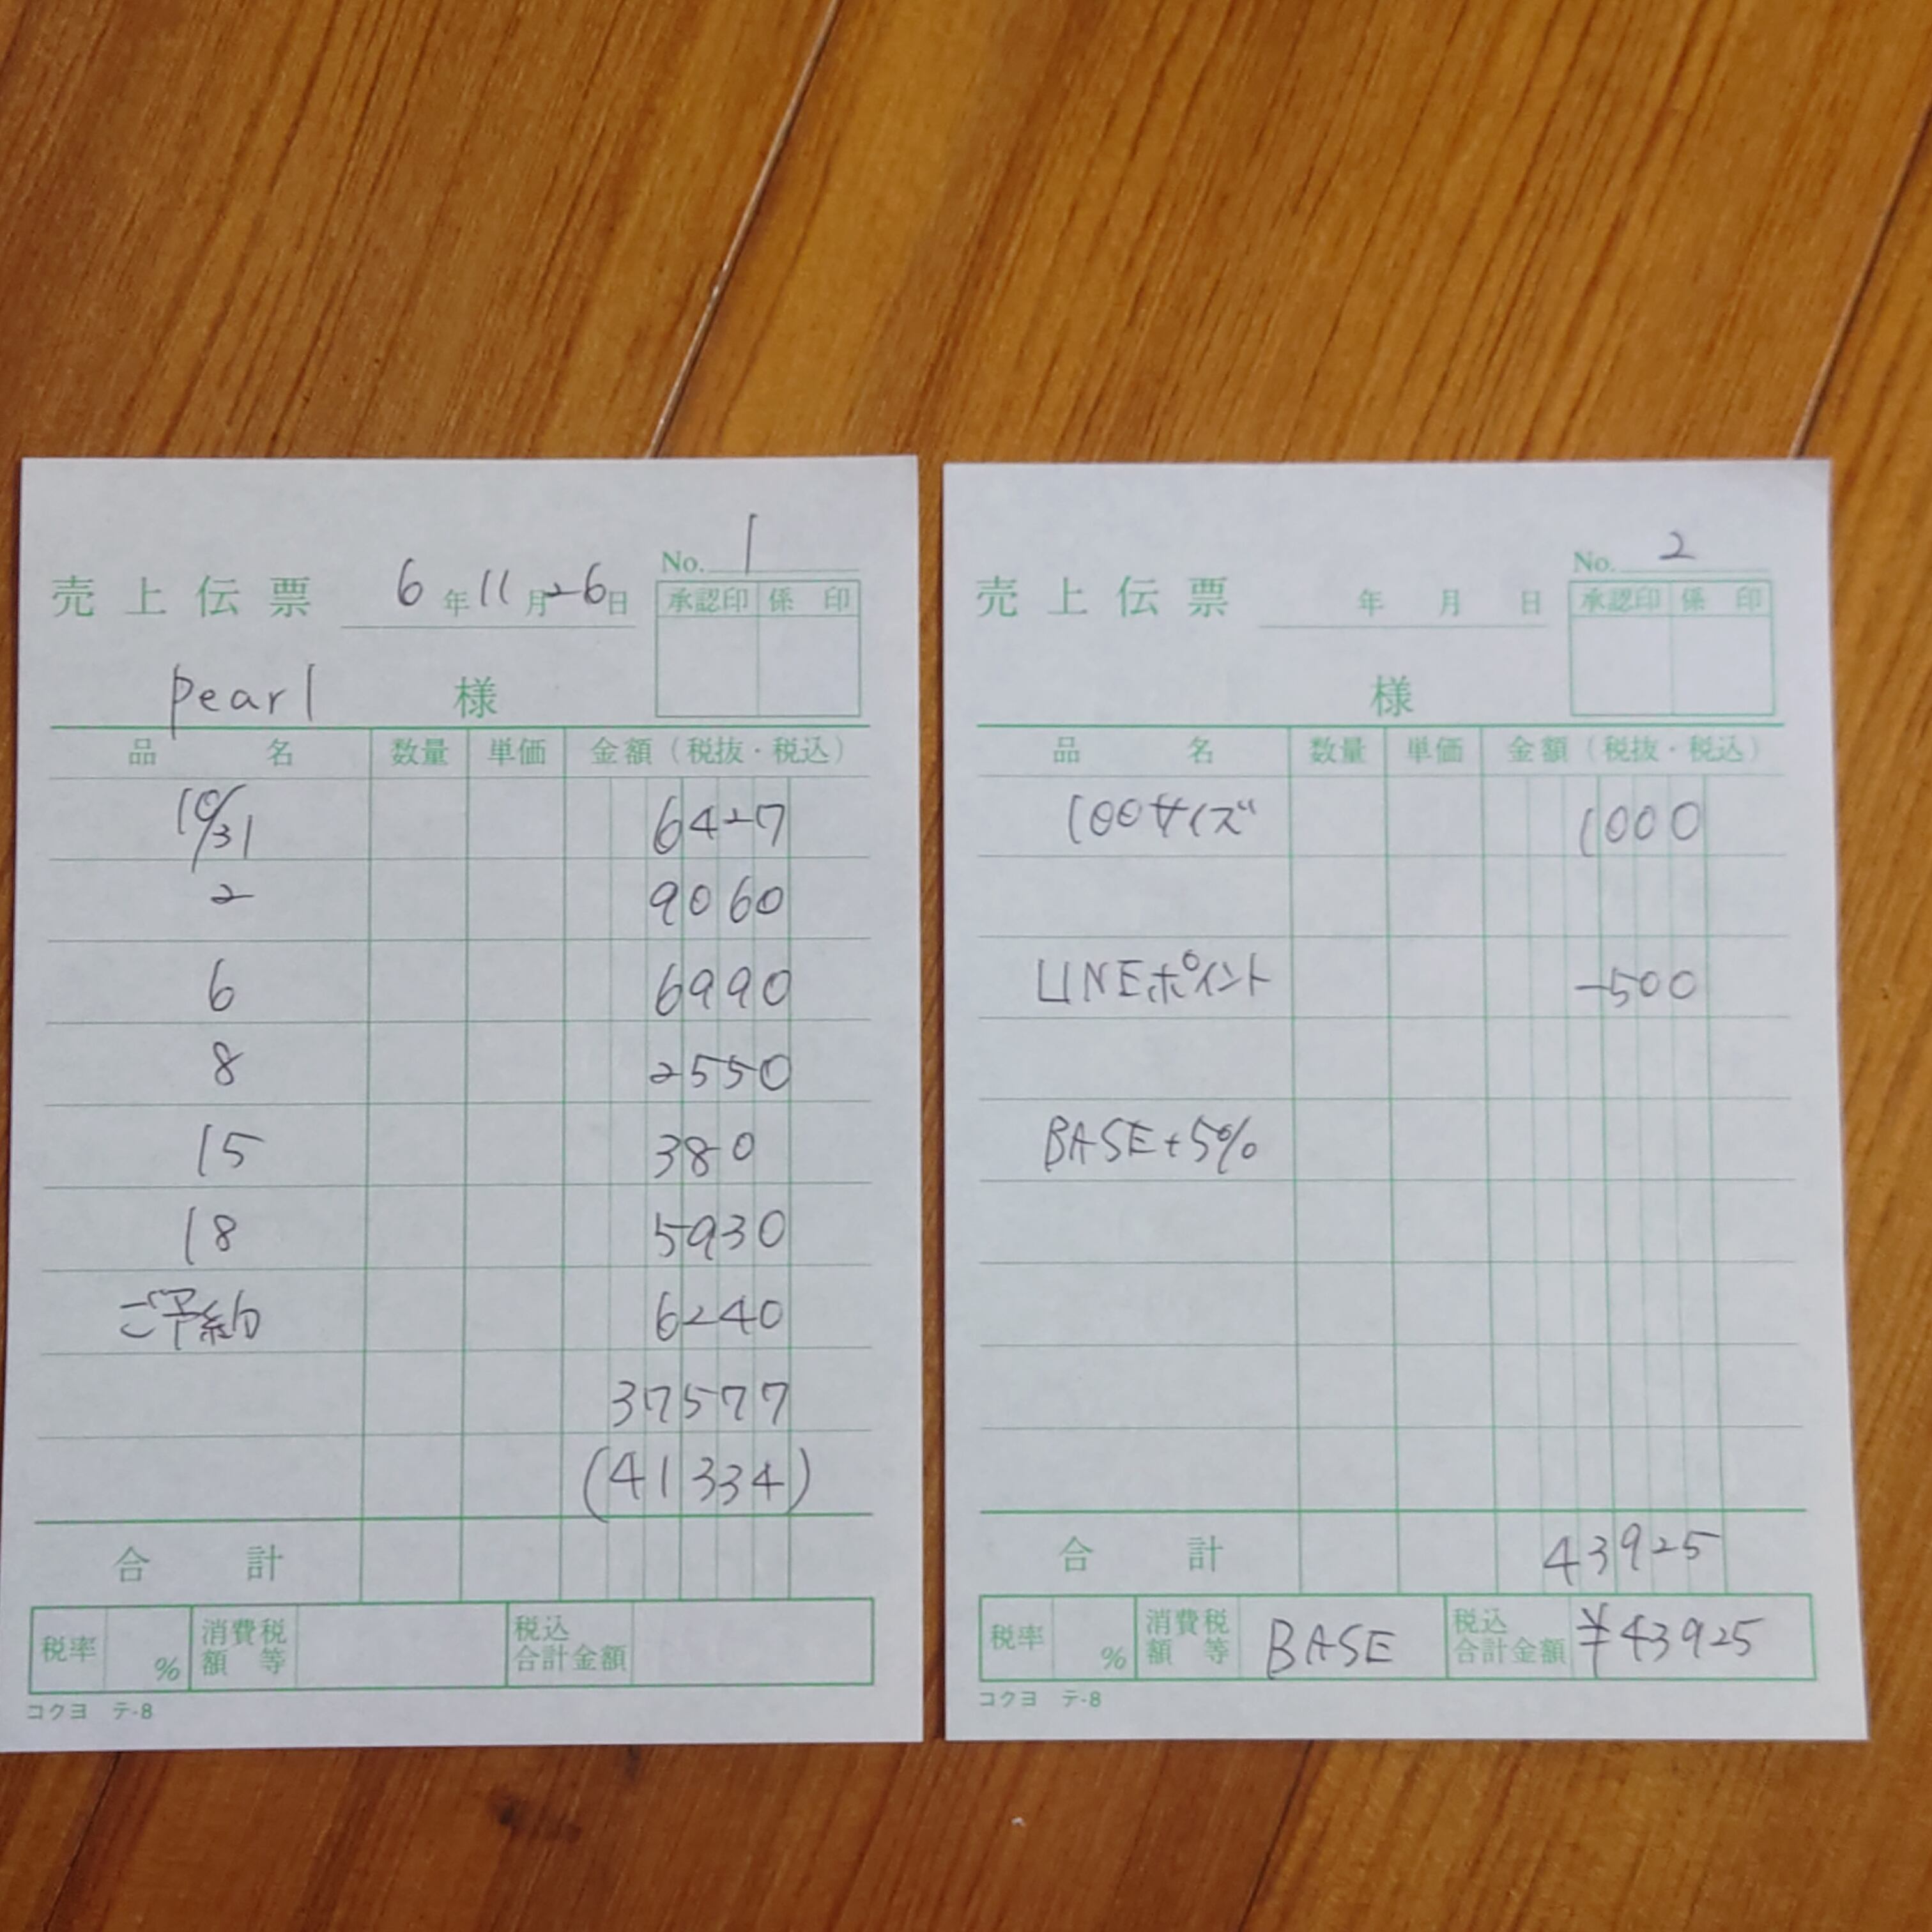 No. 1
売上伝票 6年11月26日
承認印 係印
pearl 様
品名 数量 単価 金額(税抜・税込)
10/31 6427
2 9060
6 6990
8 2550
15 380
18 5930
ご予約 6240
37577
(41334)
合計
税率 % 消費税額等 税込合計金額
コクヨ テ-8
No. 2
売上伝票 年 月 日
承認印 係印
様
品名 数量 単価 金額(税抜・税込)
100サイズ 1000
LINEポイント -500
BASE+5%
合計 43925
税率 % 消費税額等 BASE 税込合計金額 ¥43925
コクヨ テ-8